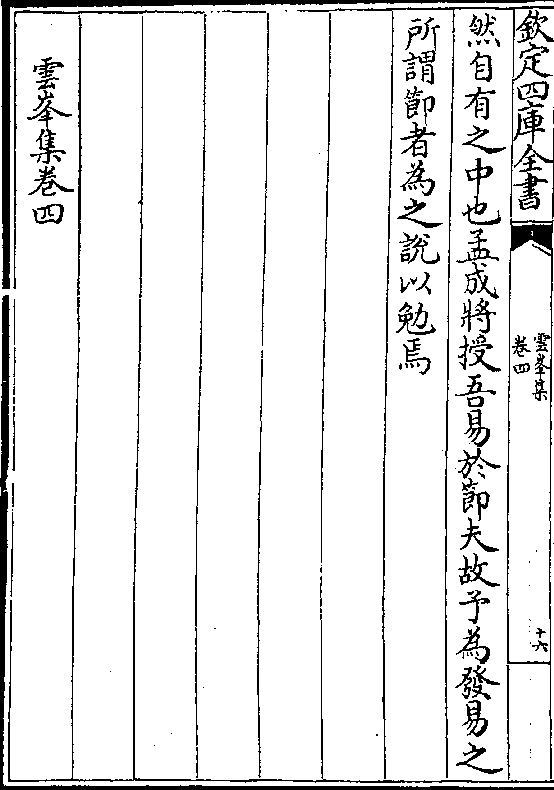 欽定四庫全書
雲峯集
卷四
十六
然自有之中也孟成將授吾易於節夫故予為發易之
所謂節者為之說以勉焉
雲峯集卷四